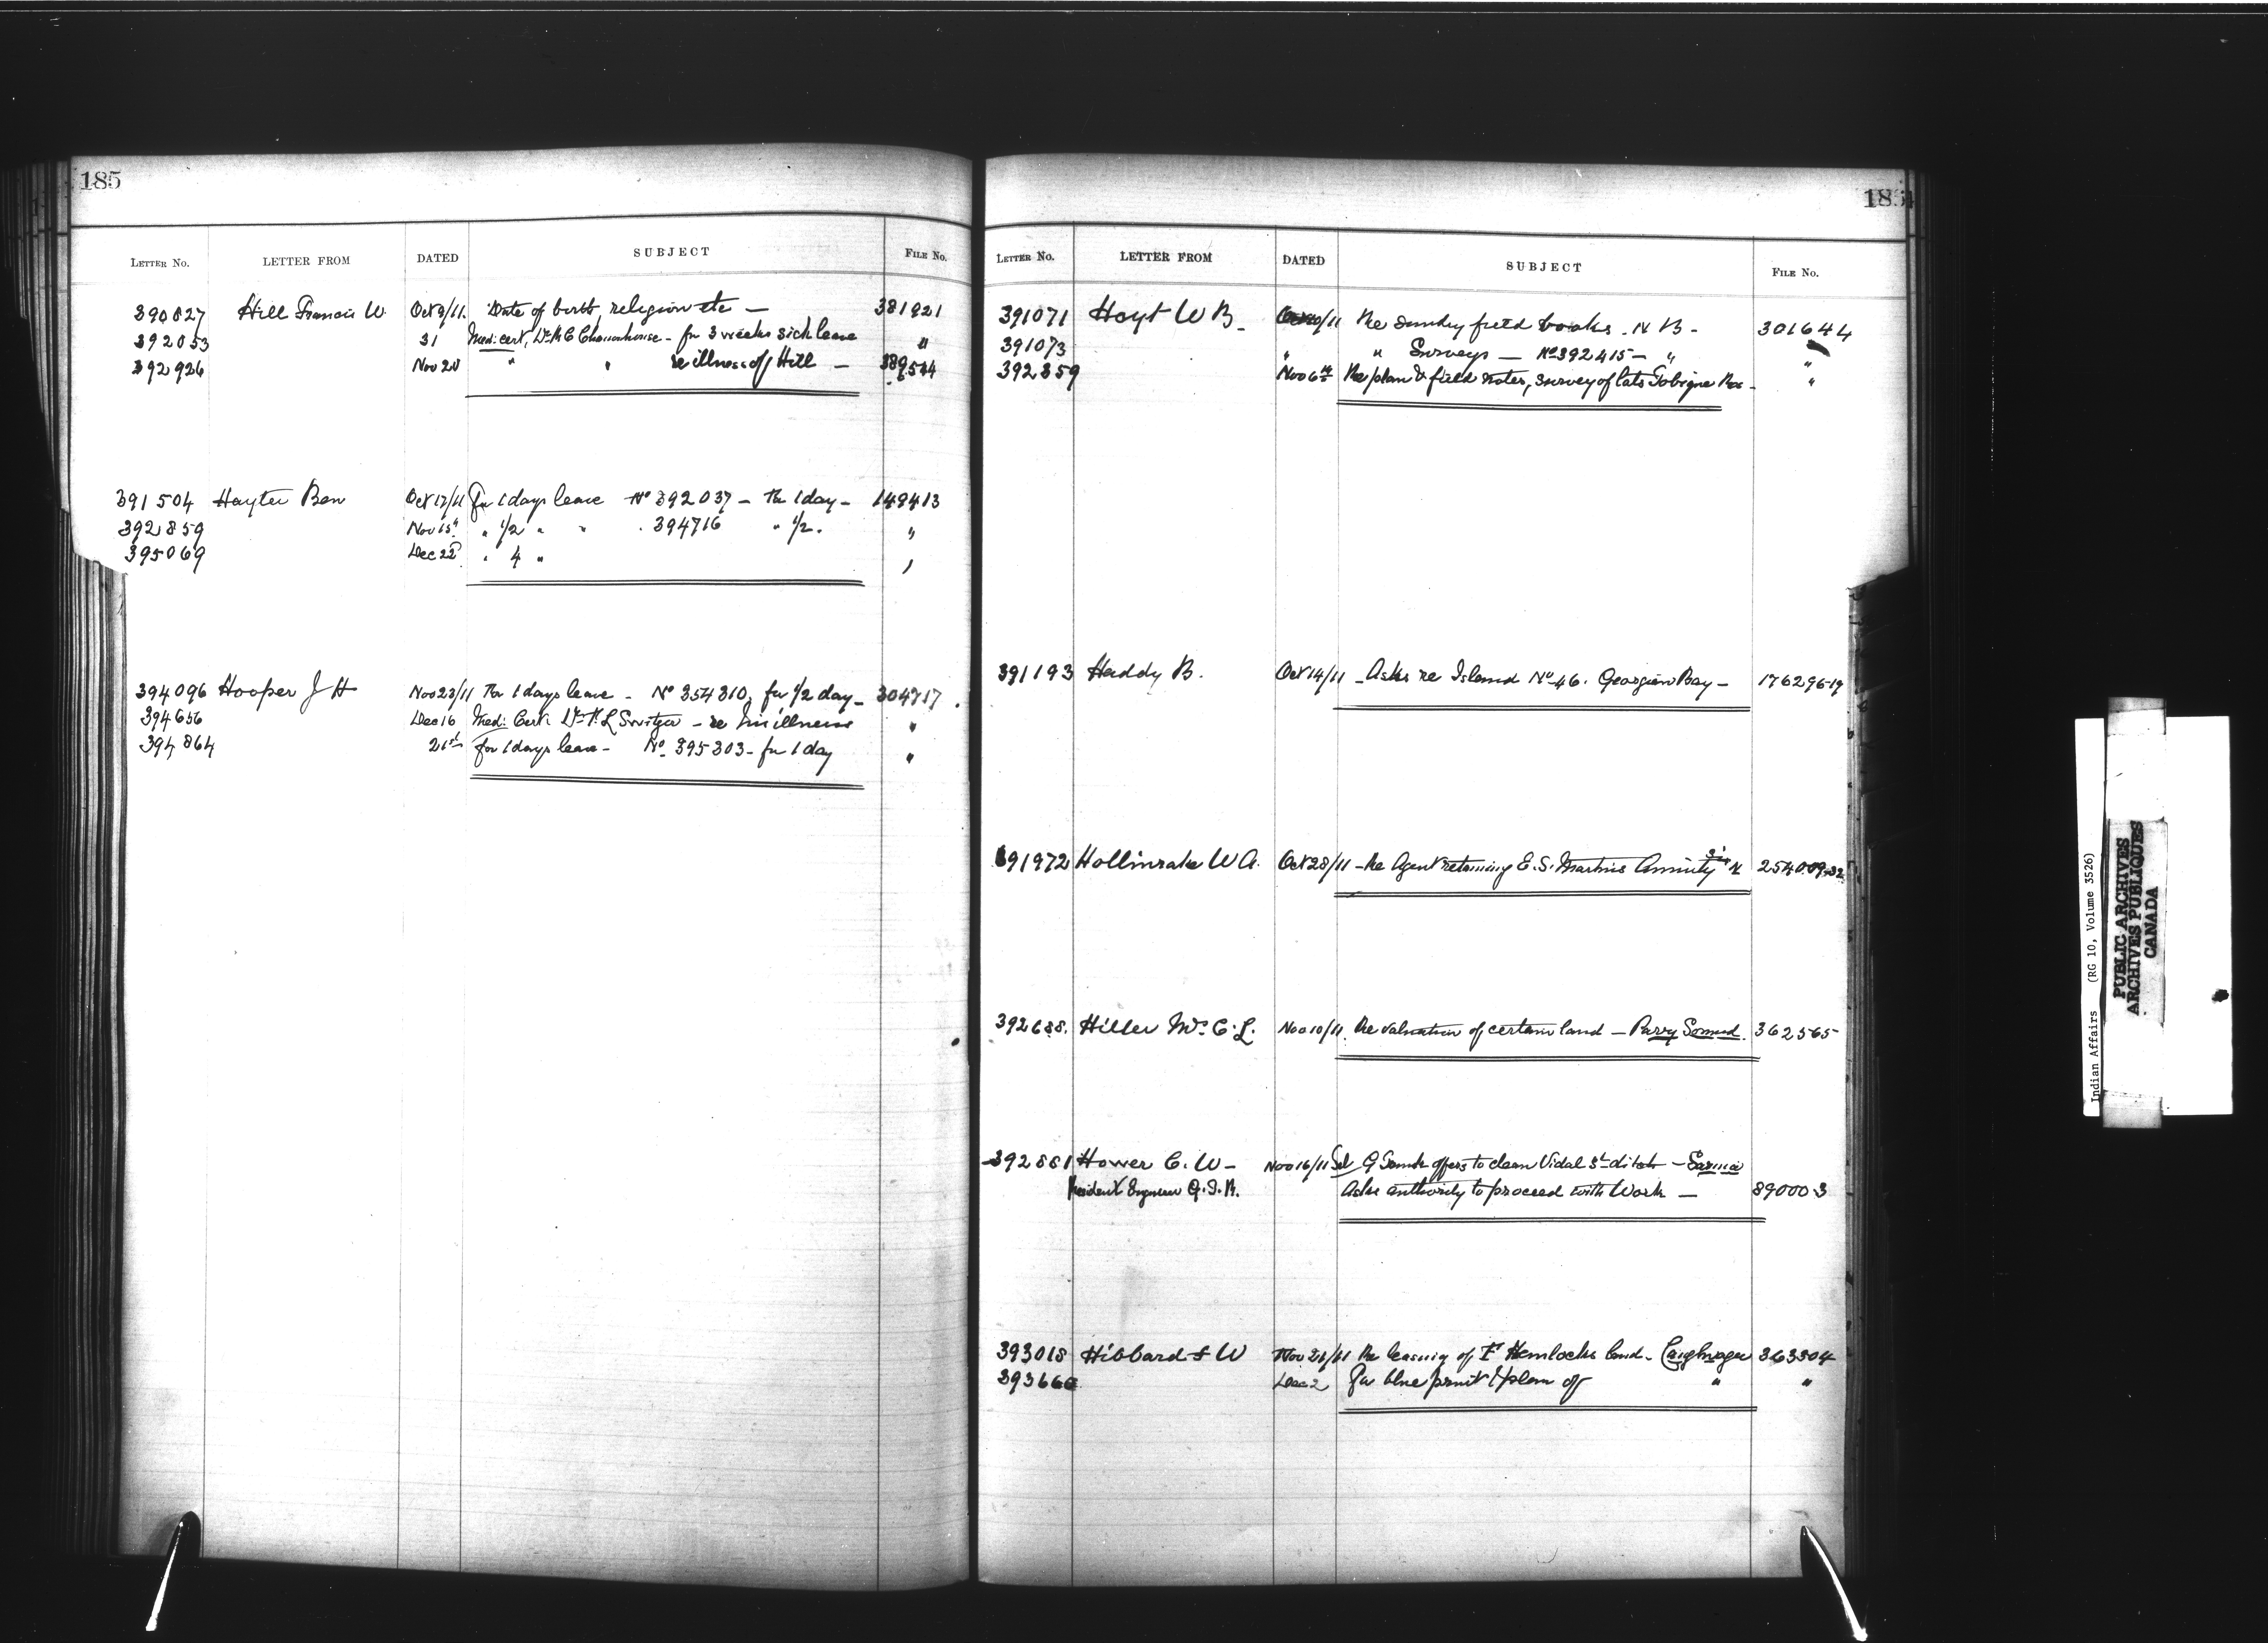 185
LETTER No. LETTER FROM DATED SUBJECT FILE No.
390827 Hill Francis W. Oct 9/11. Date of birth, religion etc — 381921
392053 31 Medi: cert, Dr for 3 weeks sick leave "
392926 Nov 20 " " re illness of Hill — 389544
391504 Hayter Ben Oct 17/11 For 1 days leave No 392037 — For 1 day — 148413
392859 Nov 15th " 1/2 " " . 394716 " 1/2. "
395069 Dec 22d " 4 " "
394096 Hooper J H Nov 23/11 For 1 days leave — No 354310, for 1/2 day — 304717
394656 Dec 16 Medi: Cert. Dr L Switzer — re his illness "
394864 21st for 1 days leave — No 395303 — for 1 day "
185
LETTER No. LETTER FROM DATED SUBJECT FILE No.
391071 Hoyt W B. 10/11 Re Sundry field books. N B — 301644
391073 " " Surveys — No 392415 — " "
392359 Nov 6th Re plan & field notes, survey of lots Tobique Res — "
391193 Haddy B. Oct 14/11 — Asks re Island No 46. Georgian Bay — 176296-19
391972 Hollinrake W A. Oct 28/11 — Re Agent retaining E. S. Martins Annuity 254009-32
392688. Hiller Mrs C. L. Nov 10/11. Re valuation of certain land — Parry Sound. 362565
392881 Hower C. W — Nov 16/11 G offers to clean Vidal St ditch — Sarnia
Resident Engineer G. T. R. Asks authority to proceed with Work — 89000 3
393018 Hibbard F W Nov 21/11 Re leasing of Hemlocks land — Caughnaga 363304
39366 Dec 2 For blue print & plan of " "
Indian Affairs (RG 10, Volume 3526)
PUBLIC ARCHIVES
ARCHIVES PUBLIQUES
CANADA